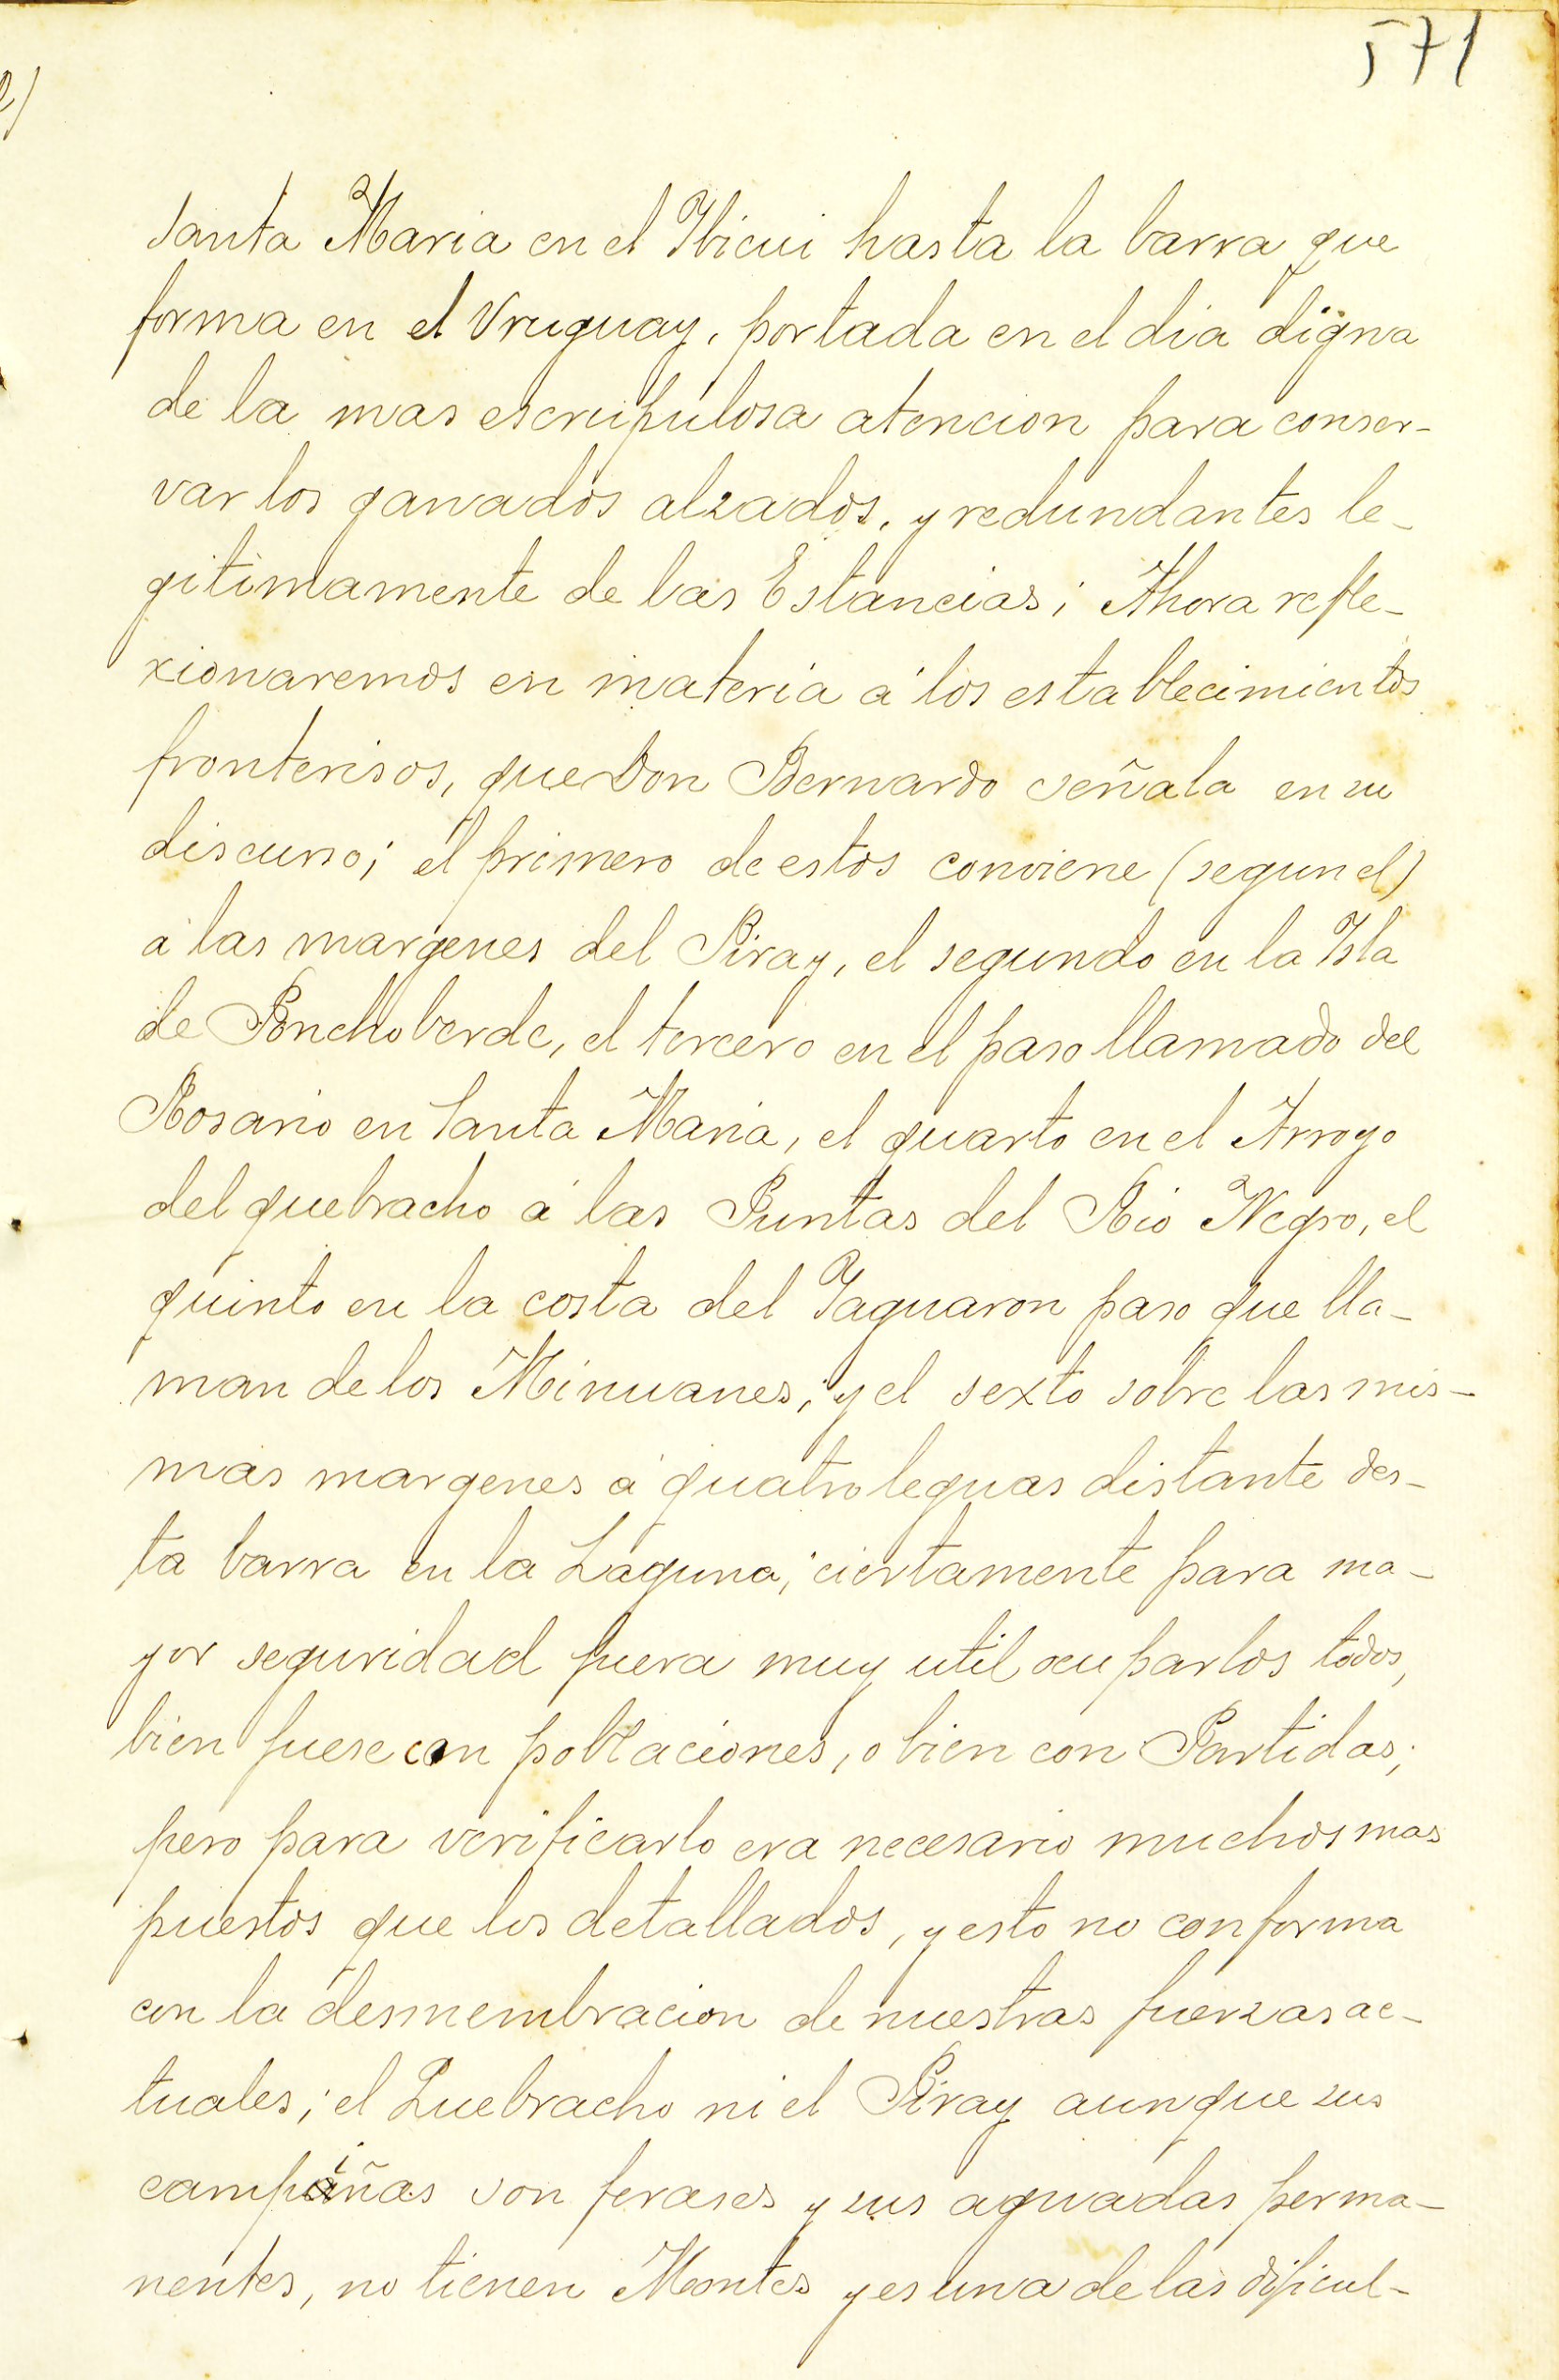 571
Santa Maria en el Ybicui hasta la barra que
forma en el Vruguay, portada en el dia digna
de la mas escrupulosa atencion para conser-
var los ganados alzados, y redundantes le-
gitimamente de las Estancias; Ahora refle-
xionaremos en materia á los establecimientos
fronterisos, que Don Bernardo señala en su
discurso; el primero de estos conviene (segun el)
á las margenes del Piray, el segundo en la Isla
de Ponchoverde, el tercero en el paso llamado del
Rosario en Santa Maria, el quarto en el Arroyo
del quebracho á las Puntas del Rio Negro, el
quinto en la costa del Yaguaron paso que lla-
man de los Minuanes; y el sexto sobre las mis-
mas margenes á quatro leguas distante des-
ta barra en la Laguna; ciertamente para ma-
yor seguridad fuera muy util ocuparlos todos,
bien fuese con poblaciones, o bien con Partidas;
pero para verificarlo era necesario muchos mas
puestos que los detallados, y esto no conforma
con la desmembracion de nuestras fuerzas ac-
tuales; el Quebracho ni el Piray aunque sus
campiñas son ferases y sus aguadas perma-
nentes, no tienen Montes y es una de las dificul-